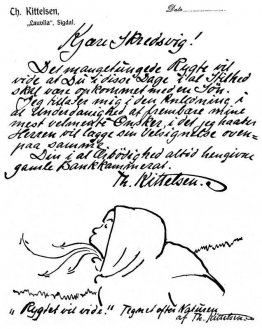 Th. Kittelsen,
"Lauvlia", Sigdal.
Date
Kjære Skredsvig!
Det mangetungede Rygte vil
vide at Du i disse Dage i al Stilhed
skal være opkommet med en Søn.
Jeg tillater mig i den Anledning i
al Underdanighed at frembære mine
mest velmente Ønsker, i det jeg haaber
Herren vil lægge sin Velsignelse oven-
paa samme.
Din i al Ærbødighed altid hengivne
gamle Dankkammerat.
Th. Kittelsen.
"Rygtet vil vide." Tegnet efter Naturen
af Th. Kittelsen.